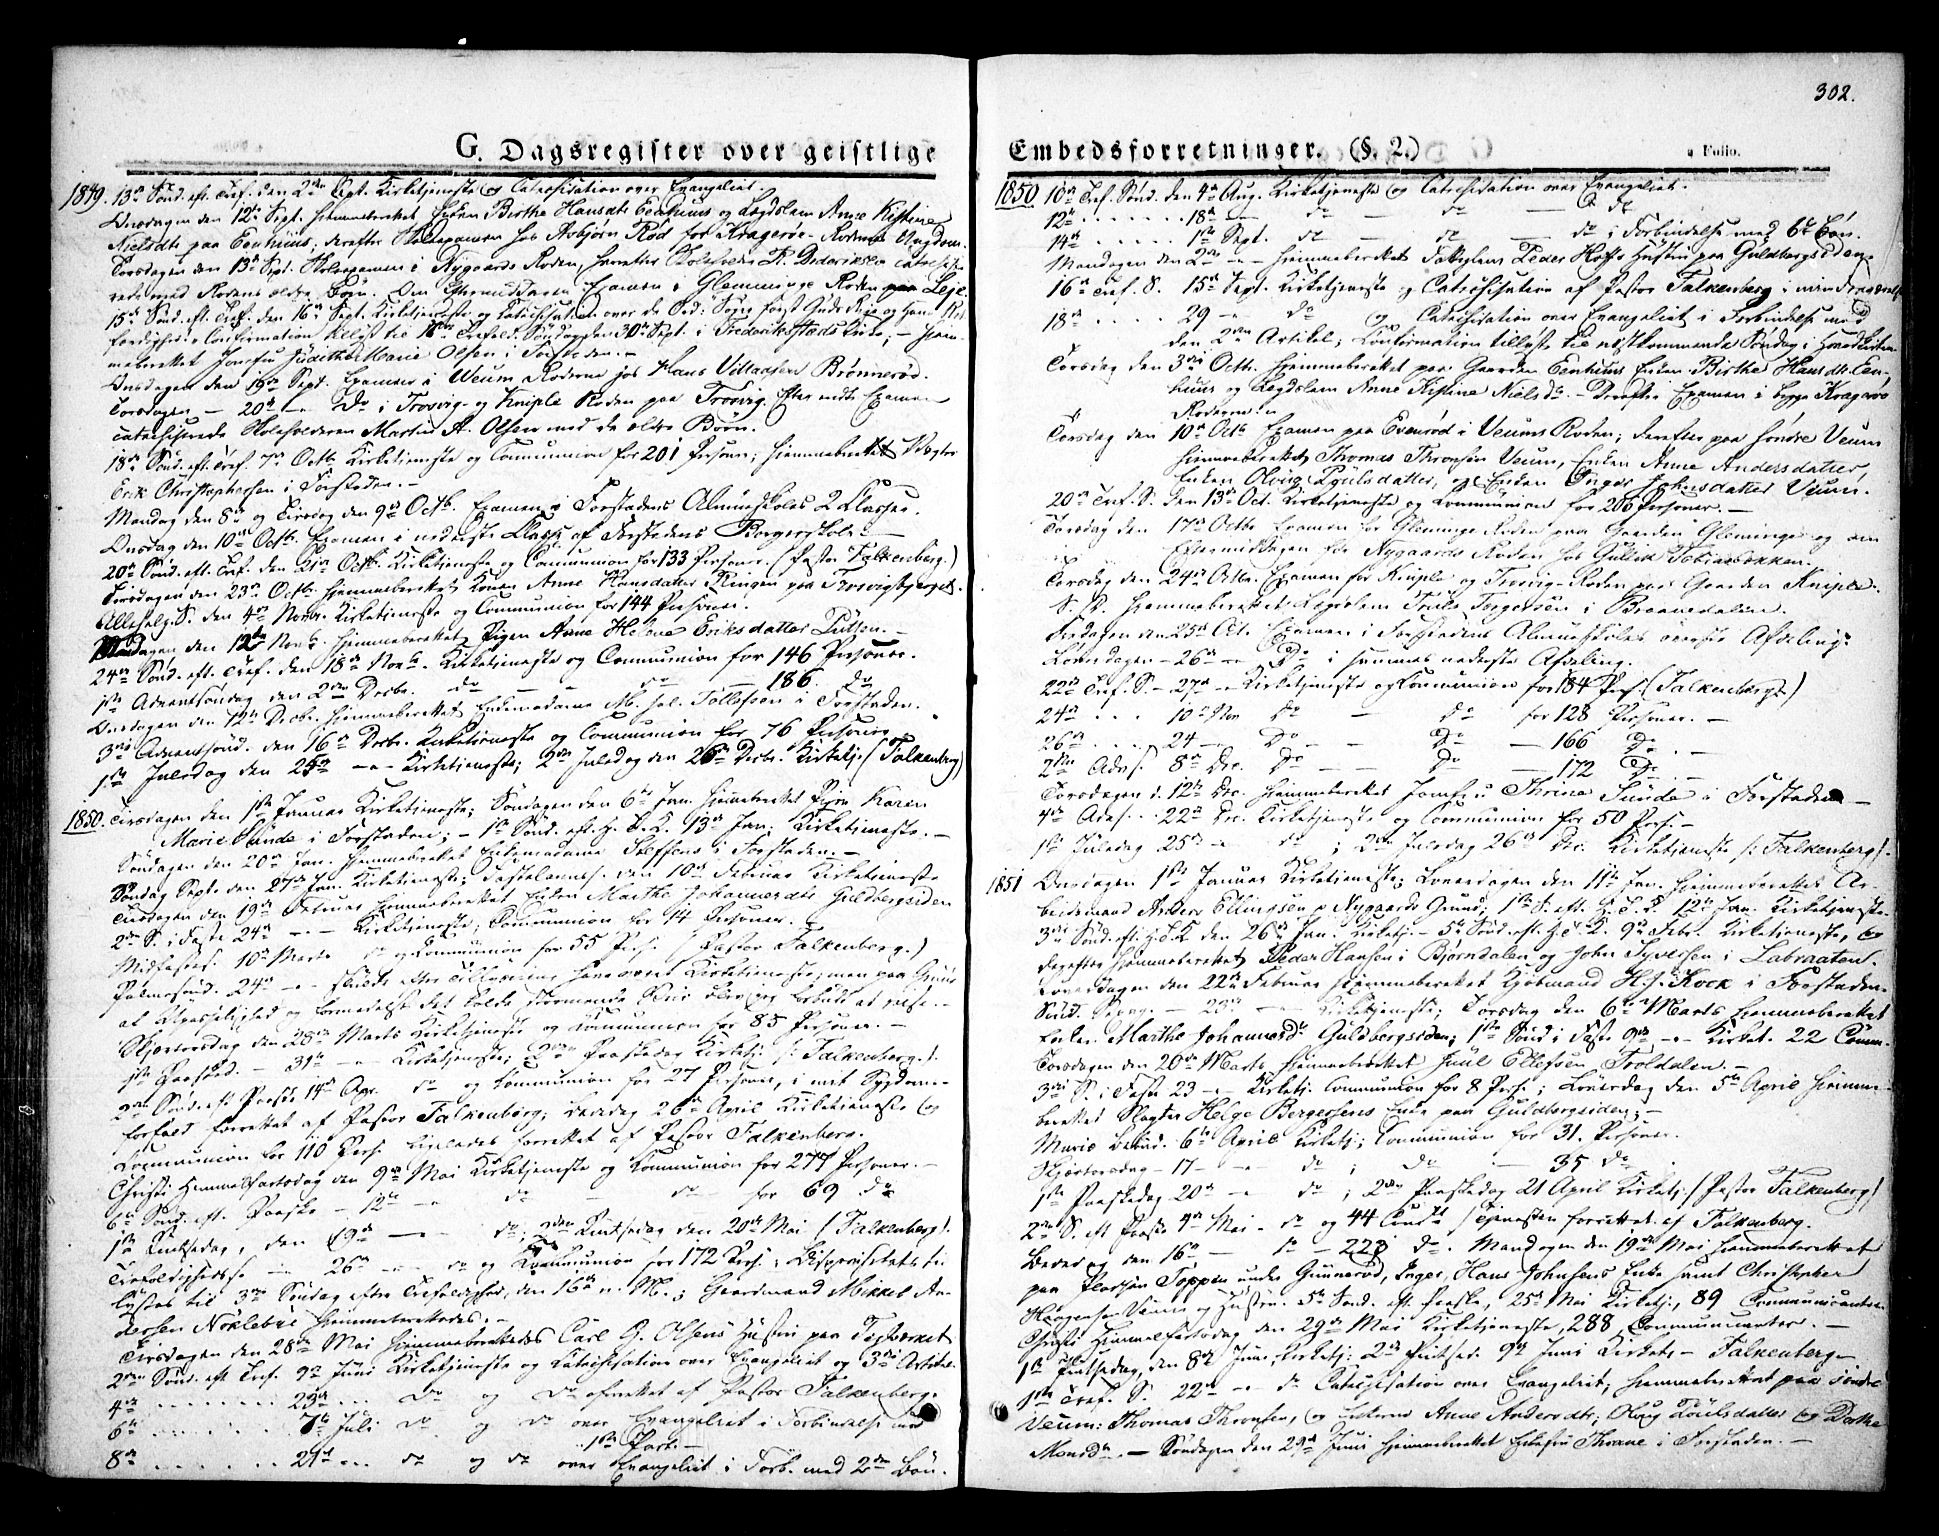 302.
G. Dagsregister over geistlige
Embedsforretninger. (§. 2.)
Folio.
1849. 13de Sønd. eft. Tref. den 2den Sept. Kirketjeneste og Catechisation over Evangeliet.
Onsdagen den 12te Sept. hjemmeberettet Enken Birthe Hansdtr Eenhuus og Lægdslem Anne Kistine
Nielsdtr paa Eenhuus; derefter Skoleexamen hos Asbjørn Rød for Kragerøe-Rodens Ungdom.
Torsdagen den 13de Sept. Skoleexamen i Nygaards Roden, hvorefter Skoleholder R. Diderichsen
rede med Rodens ældre Børn. Om Eftermiddagen Examen i Glemminge Roden
15de Sønd. eft. Tref. den 16de Sept. Kirketjeneste og Catechisation over
Confirmation tillyst til Trefold. Søndag den 30te Sept. i Frederikstads Kirke; hjem-
meberettet Jomfru Judithe Marie Olsen i Forstaden.
Onsdagen den 19de Sept. Examen i Weum Roden hos Hans Villadsen Brønnerød.
Torsdagen – 20de – Do i Trosvig og Kniple Roden paa Trosvig. Efter endt Examen
catechiserede Skoleholderen Martin A. Olsen med de ældre Børn.
18de Sønd. eft. Tref. 7de Octb. Kirketjeneste og Communion for 201 Personer; hjemmeberettet
Erik Christophersen i Forstaden.
Mandag den 8de og Tirsdag den 9de Octb. Examen i Forstadens Almueskoles 2 Classer.
Onsdag den 10de Octb. Examen i nederste Classe af Forstadens Borgerskole.
20de Sønd. eft. Tref. den 21de Octb. Kirketjeneste og Communion for 133 Personer. (Pastor Falkenberg.)
Tirsdagen den 23de Octb. hjemmeberettet Konen Anne Hansdatter Ringen paa Trosvigbjerget.
Allehelg. S. den 4de Novbr. Kirketjeneste og Communion for 144 Personer.
Mandagen den 12te Novb. hjemmeberettet Pigen Anne Helene Eriksdatter
24de Sønd. eft. Tref. den 18de Novb. Kirketjeneste og Communion for 146 Personer.
1ste Adventsøndag den 2den Decbr. do – do – 186 Do
Onsdagen den 12te Decbr. hjemmeberettet Enkemadame M. sal. Tollefsen i Forstaden.
3die Adventsønd. den 16de Decbr. Kirketjeneste og Communion for 76 Personer
1ste Juledag den 25de – Kirketjeneste; 2den Juledag den 26de Decbr. Kirketj. (Falkenberg)
1850. Tirsdagen den 1ste Januar Kirketjeneste; Søndagen den 6te Jan. hjemmeberettet Pigen Karen
Marie Sunde i Forstaden; – 1ste Sønd. eft. H. 3. K. 13de Jan. Kirketjeneste.
Søndagen den 20de Jan. hjemmeberettet Enkemadame Steffens i Forstaden.
Søndag Sept. den 27de Jan. Kirketjeneste; Fastelavns. den 10de Februar Kirketjeneste
Tirsdagen den 19de Februar hjemmeberettet Enken Marthe Johannesdtr Guldbergsiden
2den S. i Faste 24de – Kirketjeneste, Communion for 14 Personer.
Midfastes. 10de Marts do og Communion for 55 Pers. (Pastor Falkenberg.)
Palmesønd. 24de – skulde efter Tillysning have været Kirketjeneste, men paa Grund
af Upasselighed og formedelst det kolde stormende Veir
Skjærtorsdag den 28de Marts Kirketjeneste og Communion for 85 Personer.
1ste Paaskd. – 31te – Kirketjeneste; 2den Paaskedag Kirketj. (Falkenberg).
2den Sønd. eft. Paaske 14de Apr. do og Communion for 27 Personer, i mit Sygdoms-
forfald forrettet af Pastor Falkenberg; Bededag 26de April Kirketjeneste og
Communion for 110 Pers. ligeledes forrettet af Pastor Falkenberg.
Christi Himmelfartsdag den 9de Mai Kirketjeneste og Communion for 277 Personer.
6te Sønd. eft. Paaske – 12te – do – do for 69 Do
1ste Pintsedag, den 19de – do; 2den Pintsedag den 20de Mai (Falkenberg).
Trefoldighedsf. – 26de – do og Communion for 172 Pers.; Bispevisitats til-
lystes til 3die Søndag efter Trefoldighed, den 16de n. M.; Gaardmand Mikkel An-
dersen Nøklebye hjemmeberettedes.
Tirsdagen den 28de Mai hjemmeberettedes Carl G. Olsens Hustru paa
2den Sønd. eft. Tref. 9de Juni Kirketjeneste og Catechisation over Evangeliet og 3die Artikel.
4de . . . . . 23de . . Do og Do forrettet af Pastor Falkenberg.
6te . . . . . 7de Juli do og do over Evangeliet i Forbindelse med
1ste Part.
8de . . . . . 21de . . do og do over Evangeliet i Forb. med 2den Bøn.
1850 10de Tref. Sønd. den 4de Aug. Kirketjeneste og Catechisation over Evangeliet.
12te – – – 18de – do – do – do
14de . . . . 1ste Sept. do – do – do i Forbindelse med 6te Bøn.
Mandagen den 2den – hjemmeberettet Peder Hoffs Hustru paa Guldbergsiden.
16de Tref. S. 15de Sept. Kirketjeneste og Catechisation af Pastor Falkenberg i min Fraværelse
18de . . . . 29 – do og Catechisation over Evangeliet i Forbindelse med
den 2den Artikel; Confirmation tillyste til næstkommende Søndag i Hovedkirken.
Torsdag den 3die Octb. hjemmeberettet paa Gaarden Eenhuus Enken Birthe Hansdtr Een-
huus og Lægdslem Anne Kistine Nielsdtr. – Derefter Examen i Kragerøe
Roden.
Torsdag den 10de Octb. Examen paa Evenrød i Veums Roden; derefter paa søndre Veum
hjemmeberettet Thomas Thronsen Veum, Enken Anne Andersdatter,
Enken Olvig Poulsdatter, og Enken Inger Johnsdatter Veum.
20de Tref. S. den 13de Oct. Kirketjeneste og Communion for 206 Personer. –
Torsdag den 17de Octb. Examen for Gleminge Roden paa Gaarden Gleminge og om
Eftermiddagen for Nygaards Roden hos Gullik
Torsdag den 24de Octbr. Examen for Kniple og Trosvig-Roden paa Gaarden Kniple.
S. D. hjemmeberettet Lægdslem Truls Torgersen i Braanedalen.
Fredagen den 25de Oct. Examen i Forstadens Almueskoles øverste Afdeling.
Løverdagen – 26de – Do i sammes nederste Afdeling.
22de Tref. S. – 27de – Kirketjeneste og Communion for 184 Pers. (Falkenberg)
24de . . . 10de Nov do – do for 128 Personer. –
26de . . . 24 – Do – Do – 166 Do
2den Adv. 8de Dec. Do – Do – 172 Do
Torsdagen d. 12te Dec. hjemmeberettet Jomfru Thrine Sunde i Forstaden –
4de Adv. . . 22de Dec. Kirketjeneste og Communion for 50 Pers. –
1ste Juledag 25de – do; 2den Juledag 26de Dec. Kirketjeneste (Falkenberg).
1851 Onsdagen 1ste Januar Kirketjeneste; Løverdagen den 11te Jan. hjemmeberettet Ar-
beidsmand Anders Ellingsen p. Nygaards Grund; 1ste S. eft. H. 3. K. 12te Jan. Kirketjeneste.
3die Sønd. eft. H. 3 K. den 26de Jan. Kirketj. – 5te Sønd. eft. H. 3 K. 9de Febr. Kirketjeneste, og
derefter hjemmeberettet Peder Hansen i Bjørndalen og John Syversen i Labraaten.
Løverdagen den 22de Februar hjemmeberettet Kjøbmand H. J. Kock i Forstaden.
Sønd. – 23de – Kirketjeneste; Torsdag den 6te Marts hjemmeberettet
Enken Marthe Johannesdtr Guldbergsiden; 1ste Sønd i Faste 9de – Kirket. 22 Comm.
Torsdagen den 20de Marts hjemmeberettet Juul Ellefsen Troldalen. –
3die S. i Faste 23 – Kirketj. Communion for 8 Pers.; Løverdag den 5te April hjemme-
berettet Slagter Helge Bergersens Enke paa Guldborgsiden; –
Marie Bebud. 6te April Kirketj.; Communion for 31. Personer.
Skjærtorsdag – 17 – do; do – 35 do
1ste Paaskedag 20de – do; 2den Paaskedag 21 April Kirketj. (Pastor Falkenberg)
2den S. eft Paaske 4de Mai – do og 44 Tjenesten forrettet af Falkenberg.
Bededag den 16de – do – 223 do. Mandagen den 19de Mai hjemmeberettet
paa Pladsen Toppen under Gunnerød, Inger, Hans Johnsens Enke samt Christopher
Veum og Hustru. 5te Sønd. eft. Paaske, 25de Mai Kirketj., 89 Communicanter.
Christi Himmelfartsdag den 29de Mai Kirketjeneste, 288 Communicanter. –
1ste Pintsedag, den 8de Juni, Kirketj. 2den Pintsed. 9de Juni Kirketj. – Falkenberg –
1ste Tref. S. 22de – do Catechisation over Evangeliet; hjemmeberettet paa Søndre
Veum: Thomas Thronsen, og Enkerne Anne Andersdtr, Olvig Poulsdatter og Dorthe
Monsdtr. – Søndagen den 29de Juni hjemmeberettet Thrane i Forstaden. –